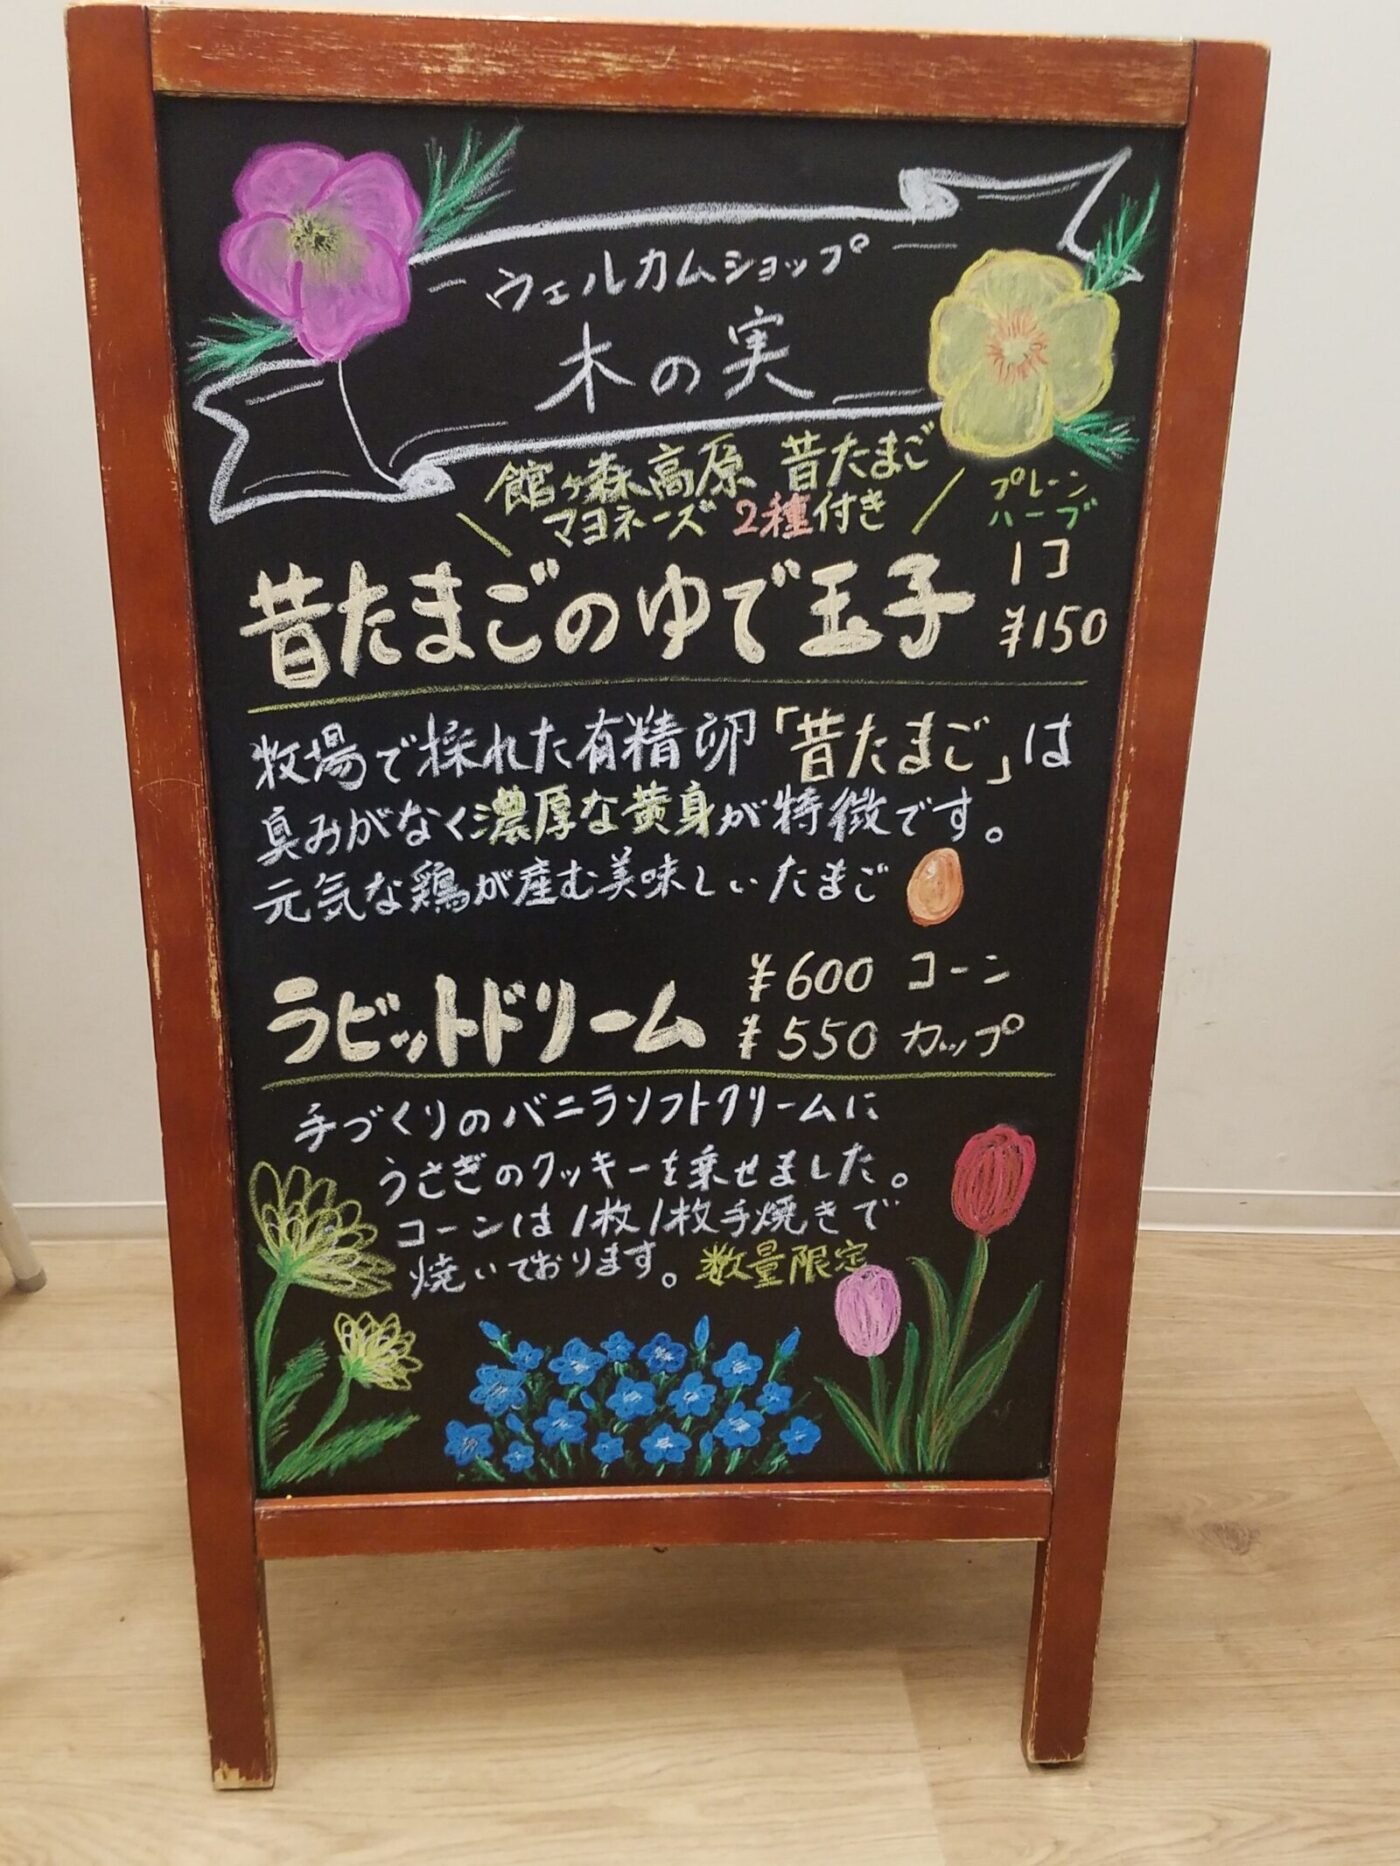 ウェルカムショップ
木の実
館ヶ森高原 昔たまご
マヨネーズ 2種付き
プレーン
ハーブ
昔たまごのゆで玉子
1コ
¥150
牧場で採れた有精卵「昔たまご」は
臭みがなく濃厚な黄身が特徴です。
元気な鶏が産む美味しいたまご
ラビットドリーム
¥600 コーン
¥550 カップ
手づくりのバニラソフトクリームに
うさぎのクッキーを乗せました。
コーンは1枚1枚手焼きで
焼いております。数量限定